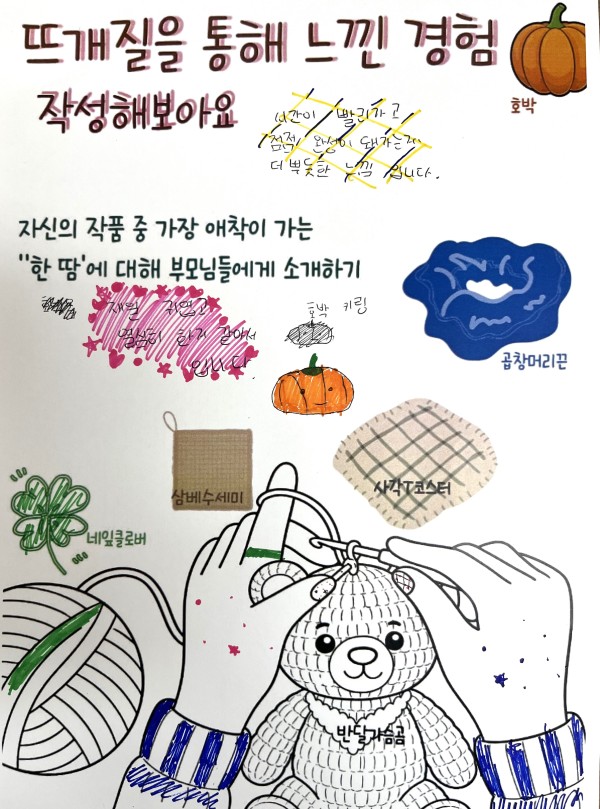 뜨개질을 통해 느낀 경험
작성해보아요
호박
시간이 빨리가고
점점 완성이 돼가는게
더 뿌듯한 느낌 입니다.
자신의 작품 중 가장 애착이 가는
"한 땀'에 대해 부모님들에게 소개하기
제일 귀엽고
열심히 한거 같아서
입니다.
호박 키링
곱창머리끈
삼베수세미
사각T코스터
네잎클로버
반달가슴곰